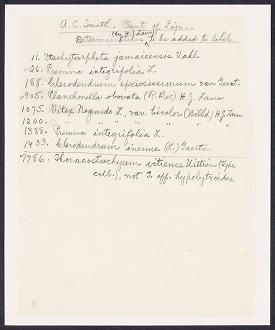 A. C. Smith. Plants of Fiji.
(by H. J. Lam)
Determinations to be added to labels.
11. Stachytarpheta jamaicensis Vahl
26. Premna integrifolia L.
188. Clerodendrum speciosissimum van Geert.
905. Planchonella obovata (R. Br.) H. J. Lam
1075. Vitex Negundo L. var. bicolor (Willd.) H. J. Lam
1200. " " " " " "
1388. Premna integrifolia L.
1433. Clerodendrum inerme (L.) Gaertn
7986. Thoracostachyum vitiense Uittien (type
coll.), not T. aff. hypolytroides